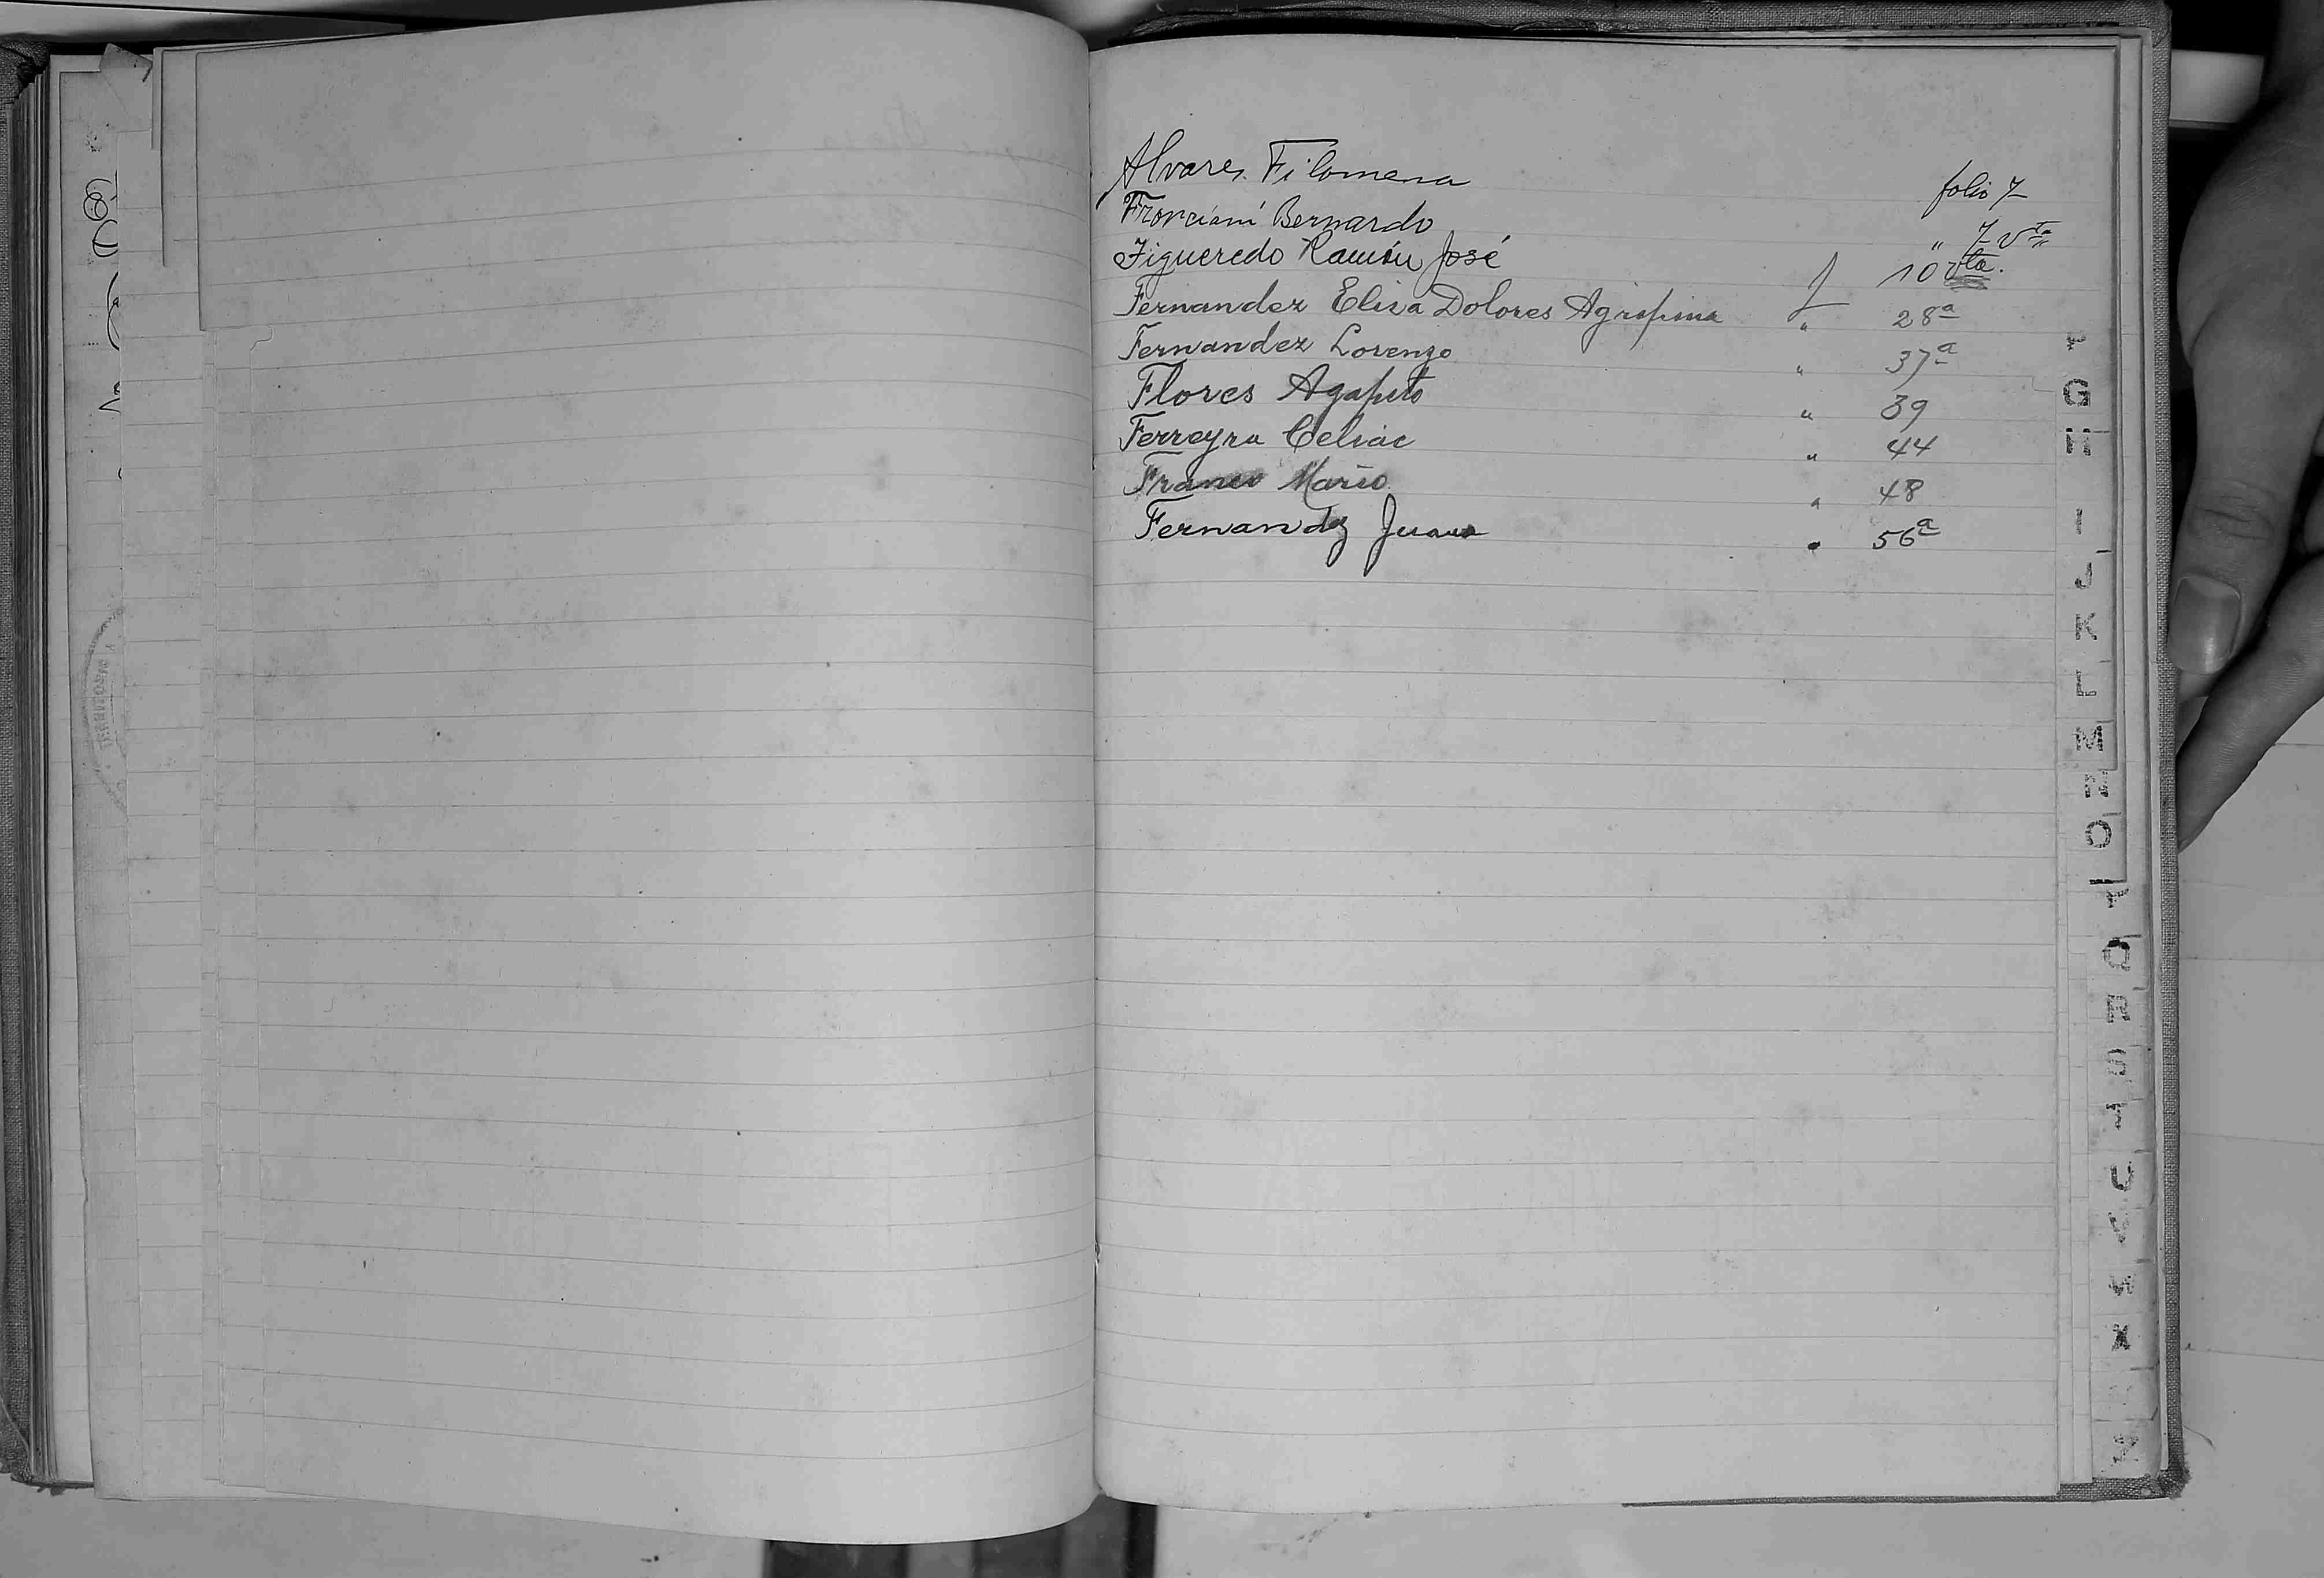 Alvares Filomena folio 7
Fronciani Bernardo " 7 vta
Figueredo Ramón José f 10 vta.
Fernandez Elisa Dolores Agripina " 28a
Fernandez Lorenzo " 37a
Flores Agapito " 39
Ferreyra Celiac " 44
Franco Mario " 48
Fernandez Juana " 56a
F
G
H
I
J
K
L
M
N
O
P
Q
R
S
T
U
V
W
X
Z